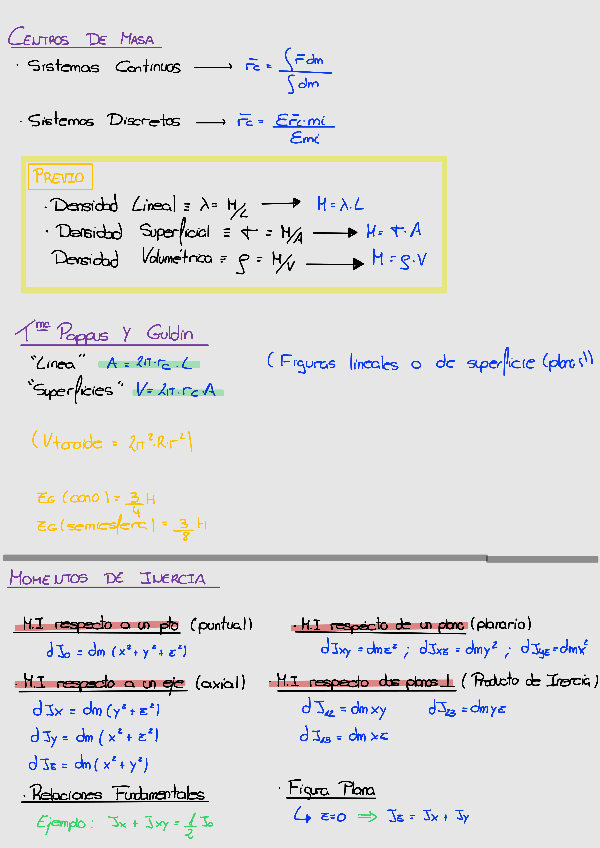 CENTROS DE MASA
· Sistemas Continuos ⟶ r̄c = ∫r̄dm / ∫dm
· Sistemas Discretos ⟶ r̄c = Σr̄c·mi / Σmi
PREVIO
· Densidad Lineal ≡ λ = M/L ⟶ M = λ.L
· Densidad Superficial ≡ σ = M/A ⟶ M = σ·A
Densidad Volumétrica ≡ ρ = M/V ⟶ M = ρ·V
Tma Pappus y Guldin
"Linea" A = 2π·rc.L (Figuras lineales o de superficie (planas))
"Superficies" V = 2π·rc A
(Vtoroide = 2π²·R·r²)
zG (cono) = 3/4 H
zG (semiesfera) = 3/8 H
MOMENTOS DE INERCIA
· M.I respecto a un pto (puntual)
dJo = dm (x² + y² + z²)
· M.I respecto a un eje (axial)
dJx = dm (y² + z²)
dJy = dm (x² + z²)
dJz = dm (x² + y²)
· Relaciones Fundamentales
Ejemplo: Jx + Jxy = 1/2 Jo
· M.I respecto de un plano (planario)
dJxy = dmz² ; dJxz = dmy² ; dJyz = dmx²
· M.I respecto dos planos ⊥ (Producto de Inercia)
dJ12 = dmxy dJ23 = dmyz
dJ13 = dmxz
· Figura Plana
↳ z=0 ⟹ Jz = Jx + Jy